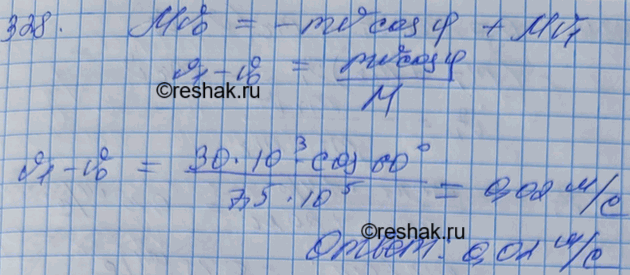 328. Mv₀ = -mv cos φ + Mv₁
v₁ - v₀ = mv cos φ / M
©reshak.ru
v₁ - v₀ = 30 · 10³ · cos 60° / 7,5 · 10⁵ = 0,02 м/с
©reshak.ru
Ответ: 0,02 м/с